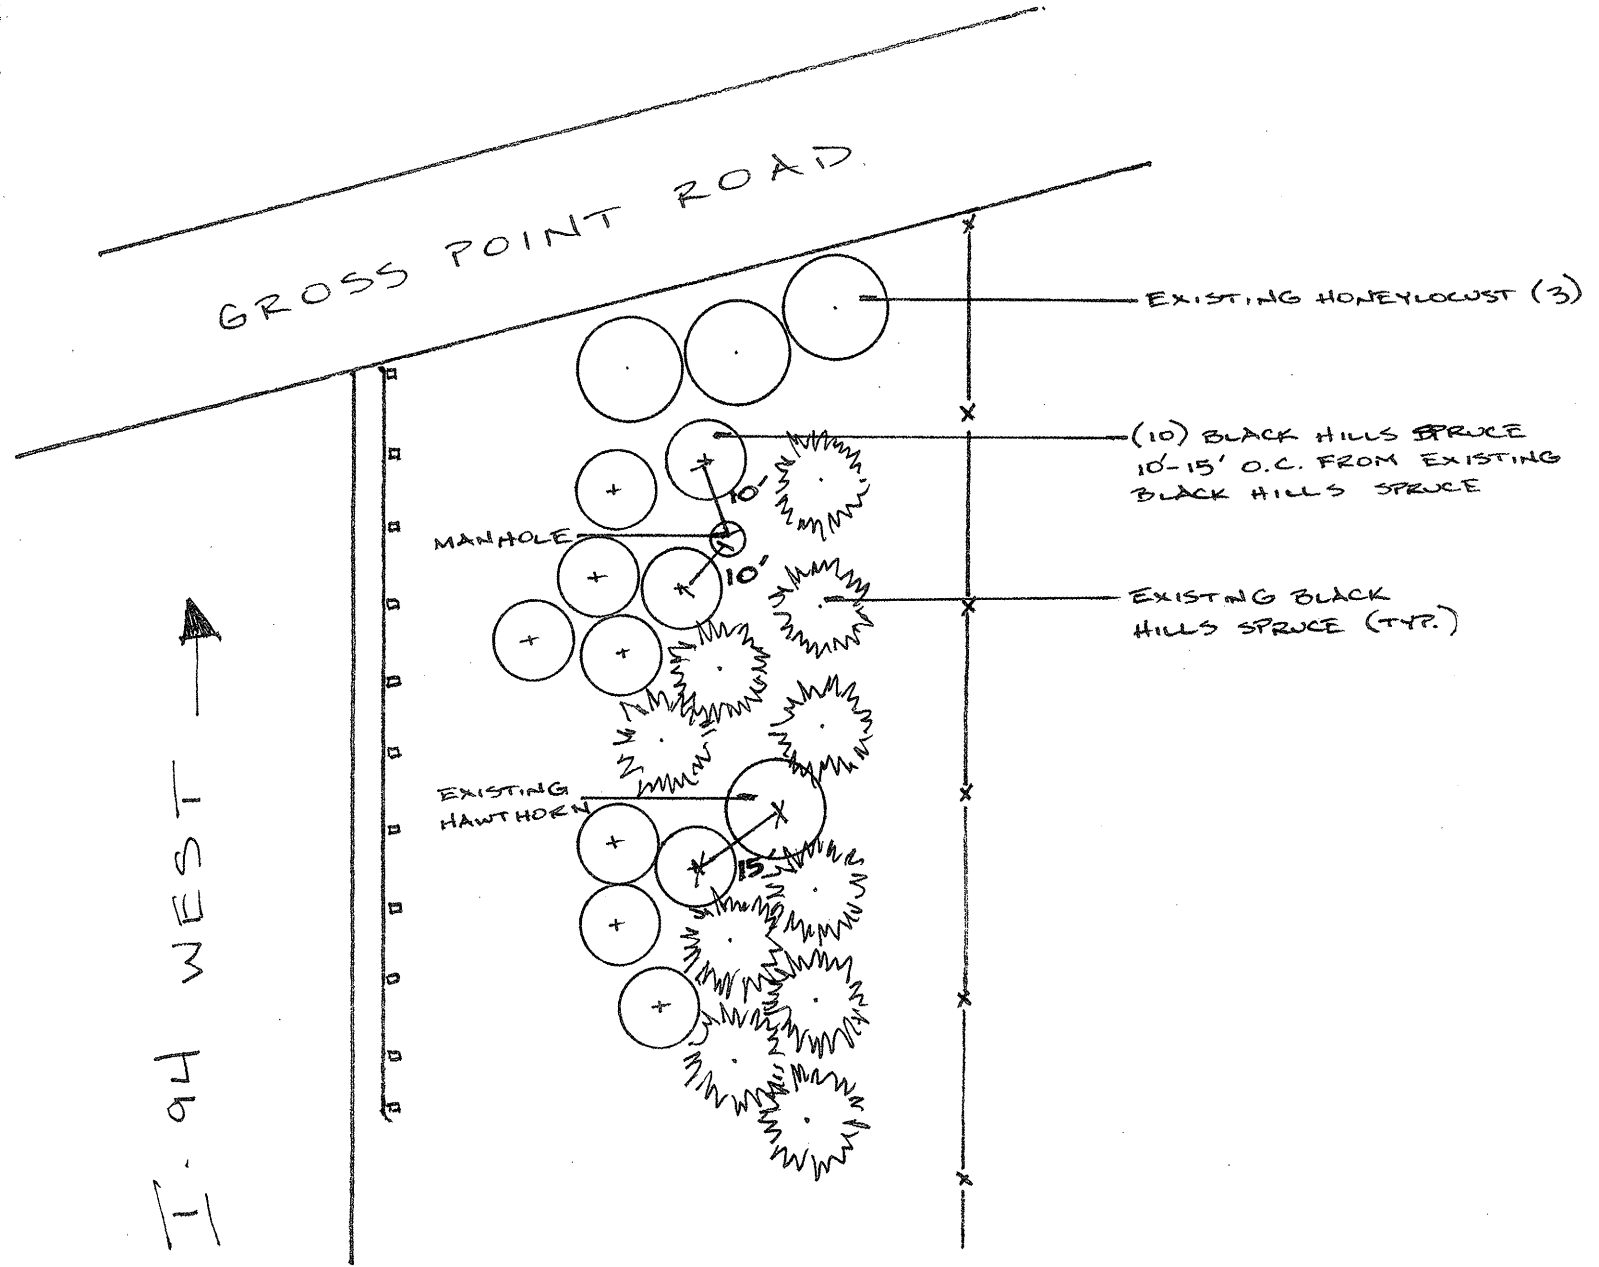 GROSS POINT ROAD.
EXISTING HONEYLOCUST (3)
(10) BLACK HILLS SPRUCE
10'-15' O.C. FROM EXISTING
BLACK HILLS SPRUCE
10'
MANHOLE
10'
EXISTING BLACK
HILLS SPRUCE (TYP.)
EXISTING
HAWTHORN
15'
I-94 WEST